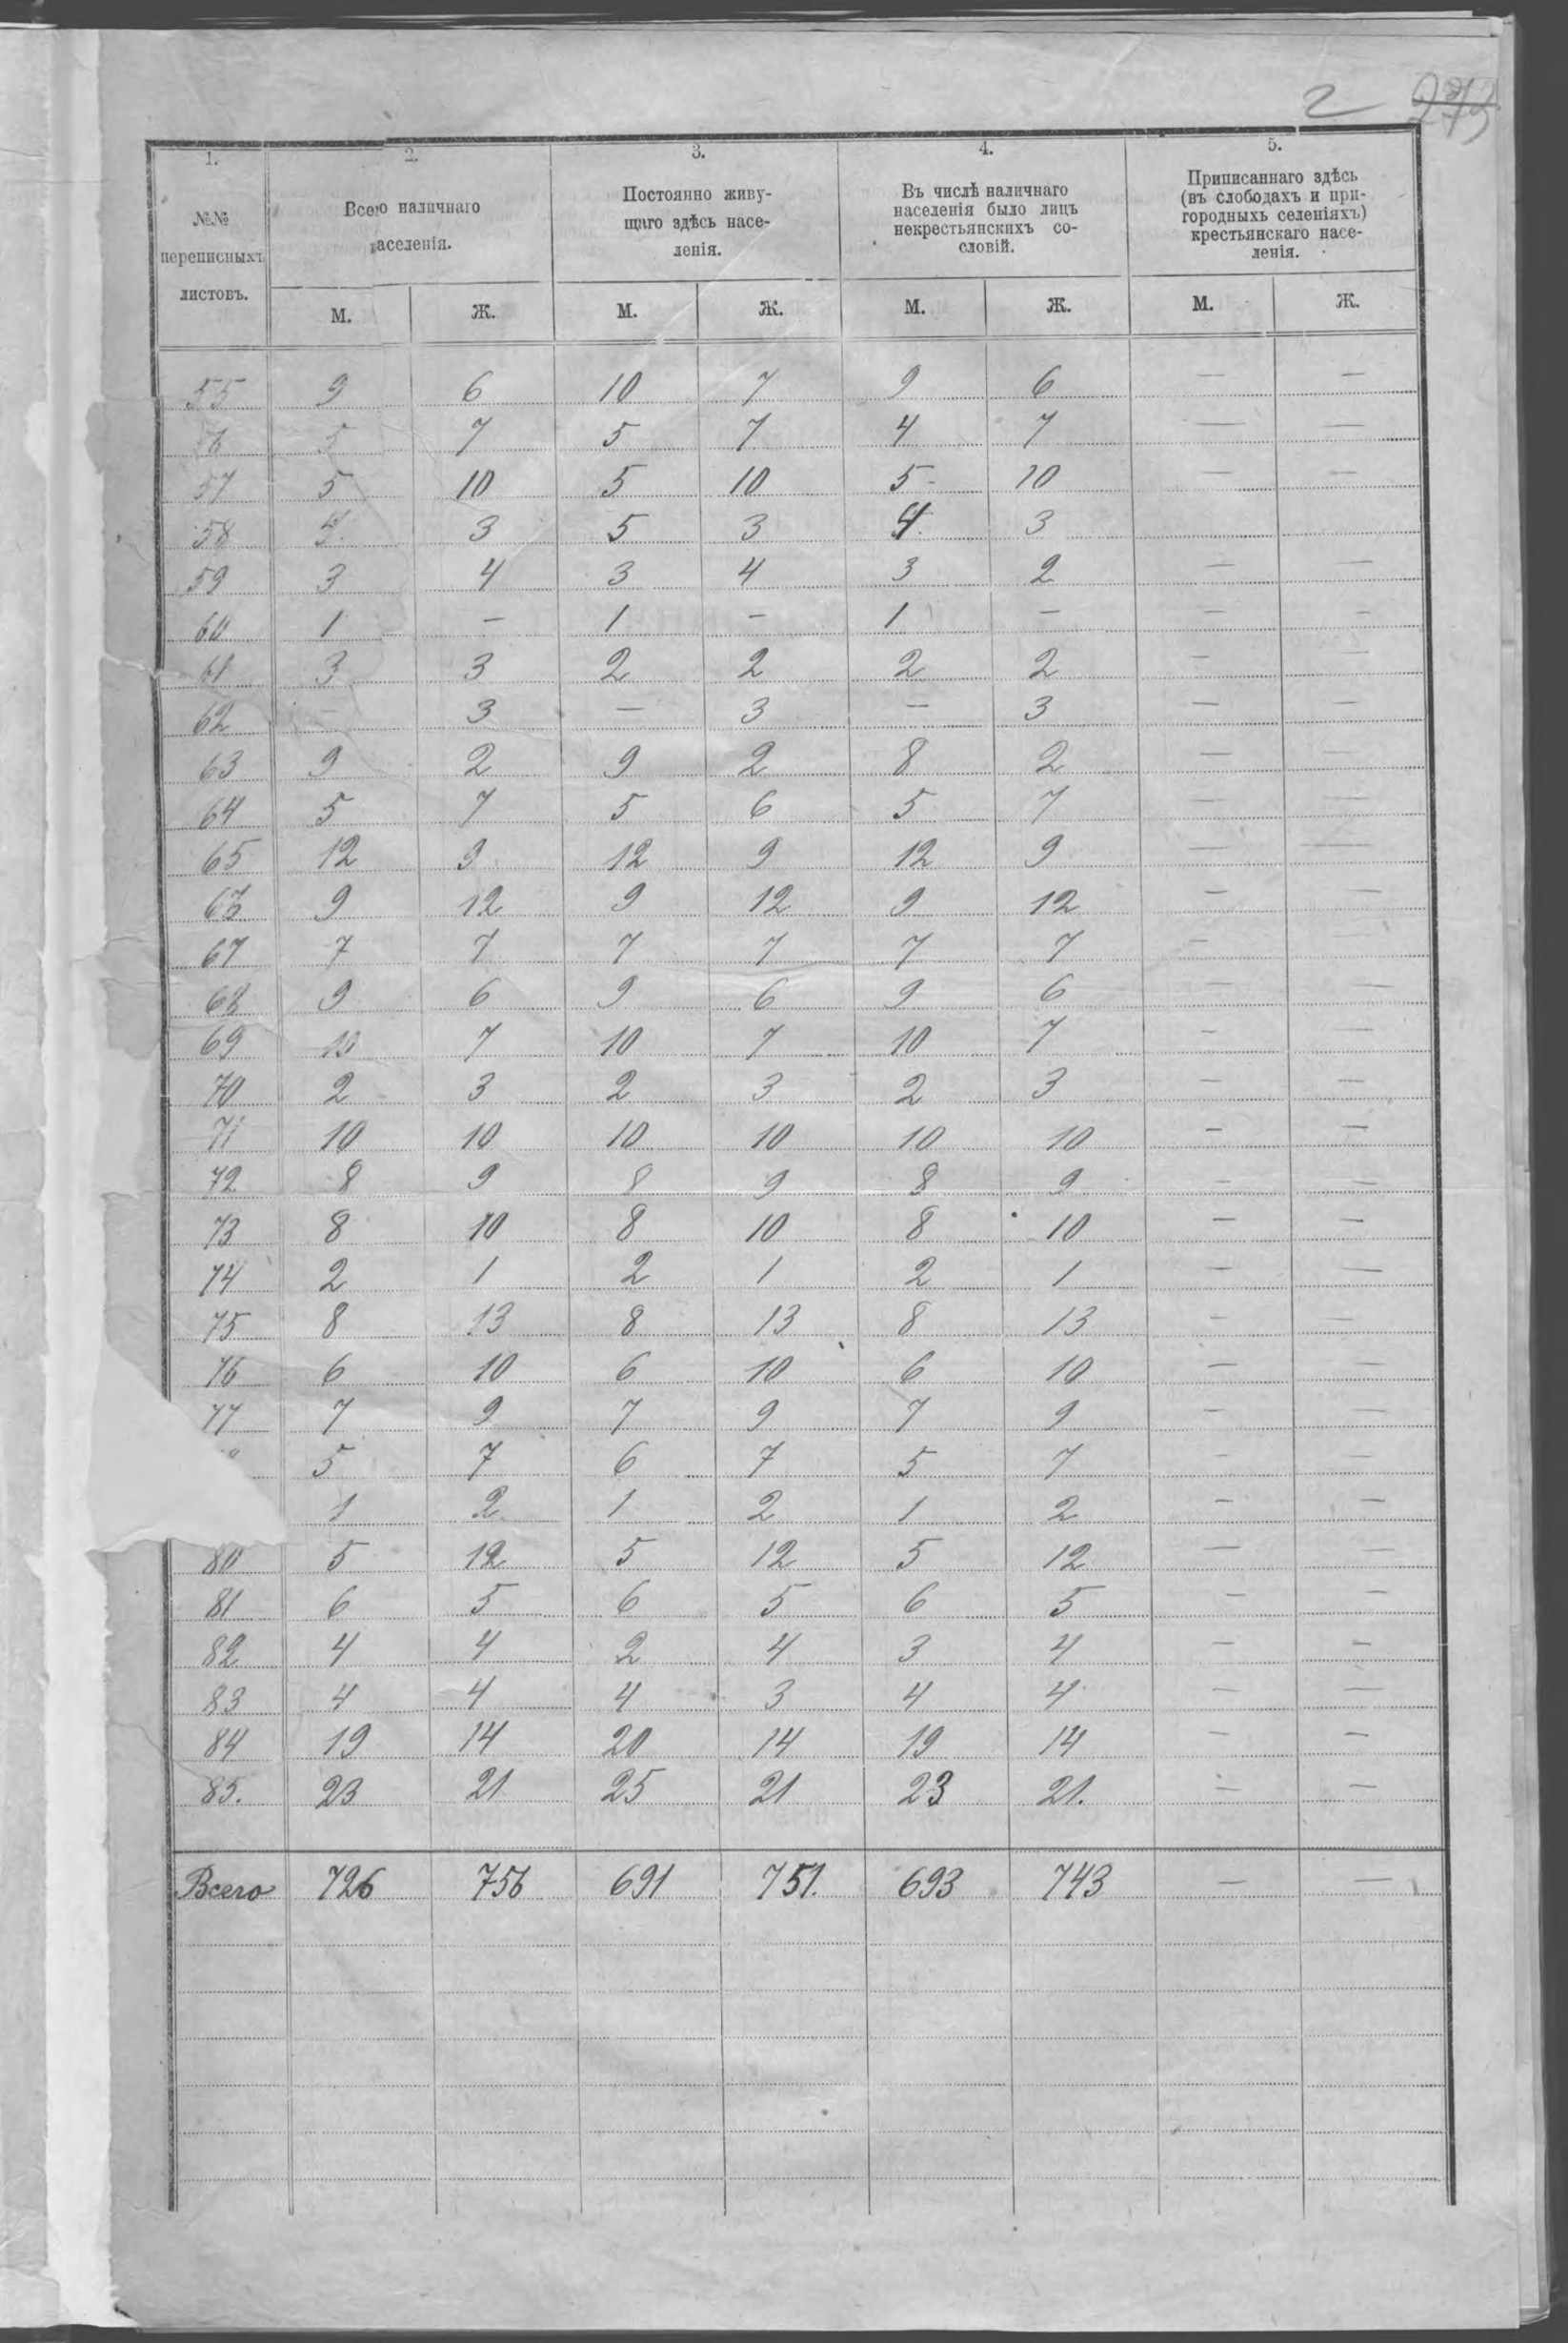 2 273
1. 2. 3. 4. 5.
№№ переписныхъ листовъ.
Всего наличнаго населенія.
Постоянно живу-
щаго здѣсь насе-
ленія.
Въ числѣ наличнаго
населенія было лицъ
некрестьянскихъ со-
словій.
Приписаннаго здѣсь
(въ слободахъ и при-
городныхъ селеніяхъ)
крестьянскаго насе-
ленія.
М. Ж. М. Ж. М. Ж. М. Ж.
55 9 6 10 7 9 6 — —
56 5 7 5 7 4 7 — —
57 5 10 5 10 5 10 — —
58 3 5 3 4 3
59 3 4 3 4 3 2 — —
60 1 — 1 — 1 — — —
61 3 3 2 2 2 2 — —
62 — 3 — 3 — 3 — —
63 9 2 9 2 8 2 — —
64 5 7 5 6 5 7 — —
65 12 9 12 9 12 9 — —
66 9 12 9 12 9 12 — —
67 7 7 7 7 7 7 —
68 9 6 9 6 9 6 — —
69 10 7 10 7 10 7 — —
70 2 3 2 3 2 3 — —
71 10 10 10 10 10 10 — —
72 8 9 8 9 8 9 — —
73 8 10 8 10 8 10 — —
74 2 1 2 1 2 1 — —
75 8 13 8 13 8 13 — —
76 6 10 6 10 6 10 — —
77 7 9 7 9 7 9 — —
5 7 6 7 5 7 — —
1 2 1 2 1 2 — —
80 5 12 5 12 5 12 — —
81 6 5 6 5 6 5 — —
82 4 4 2 4 3 4 — —
83 4 4 4 3 4 4 — —
84 19 14 20 14 19 14 — —
85. 23 21 25 21 23 21. — —
Всего 726 756 691 751. 693 743 — —